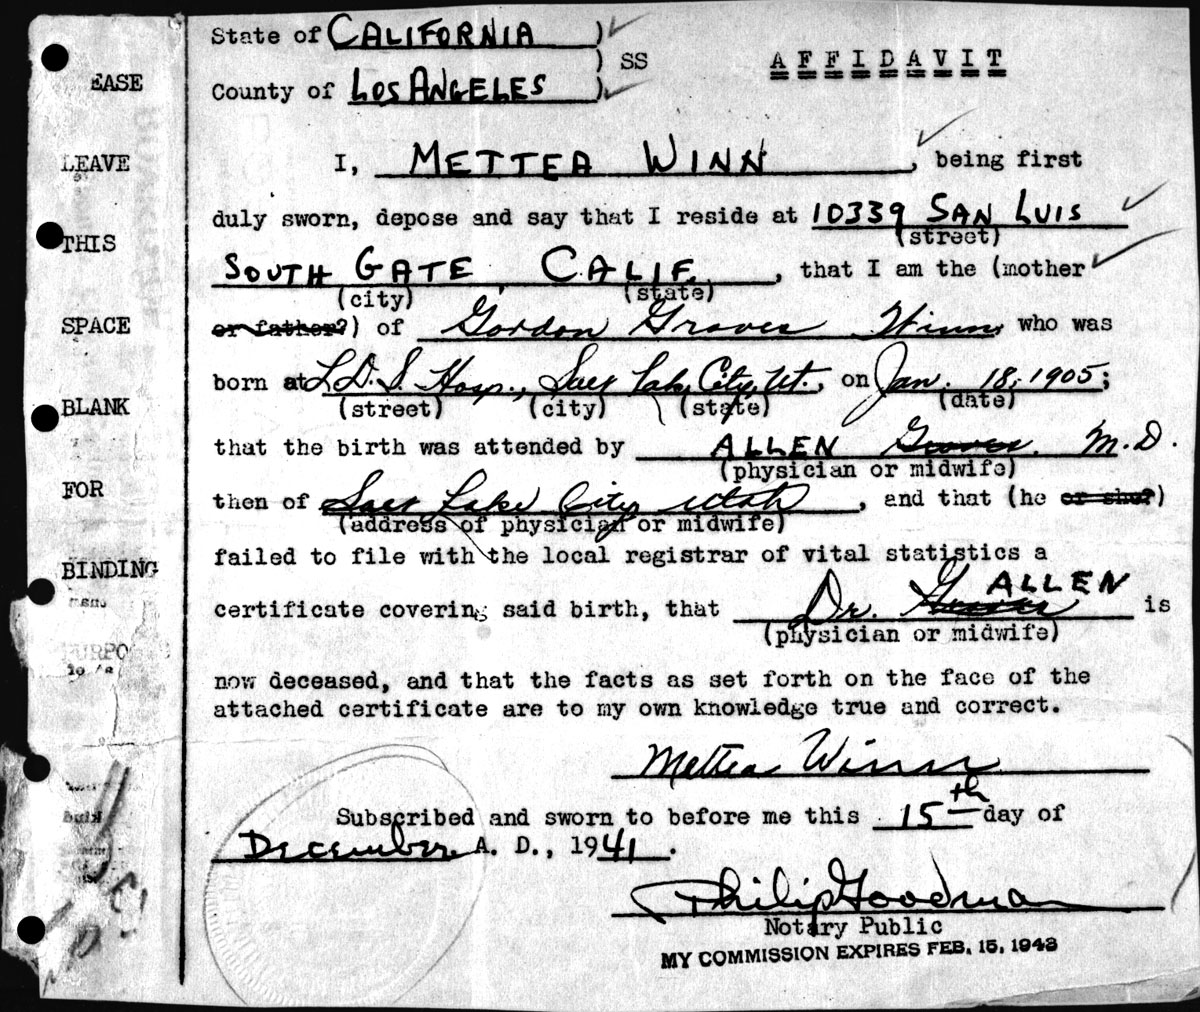 State of CALIFORNIA )
) SS
AFFIDAVIT
County of LOS ANGELES )
I, METTEA WINN, being first
duly sworn, depose and say that I reside at 10339 SAN LUIS
(street)
SOUTH GATE CALIF., that I am the (mother
(city) (state)
or father?) of Gordon Graves Winn, who was
born at L.D.S. Hosp., Salt Lake City, Ut., on Jan. 18, 1905;
(street) (city) (state) (date)
that the birth was attended by ALLEN Graves. M.D.
(physician or midwife)
then of Salt Lake City Utah, and that (he or she?)
(address of physician or midwife)
failed to file with the local registrar of vital statistics a
ALLEN
certificate covering said birth, that Dr. Graves is
(physician or midwife)
now deceased, and that the facts as set forth on the face of the
attached certificate are to my own knowledge true and correct.
Mettea Winn
Subscribed and sworn to before me this 15th day of
December A. D., 1941.
Philip Goodman
Notary Public
MY COMMISSION EXPIRES FEB. 15, 1943
EASE
LEAVE
THIS
SPACE
BLANK
FOR
BINDING
PURPO